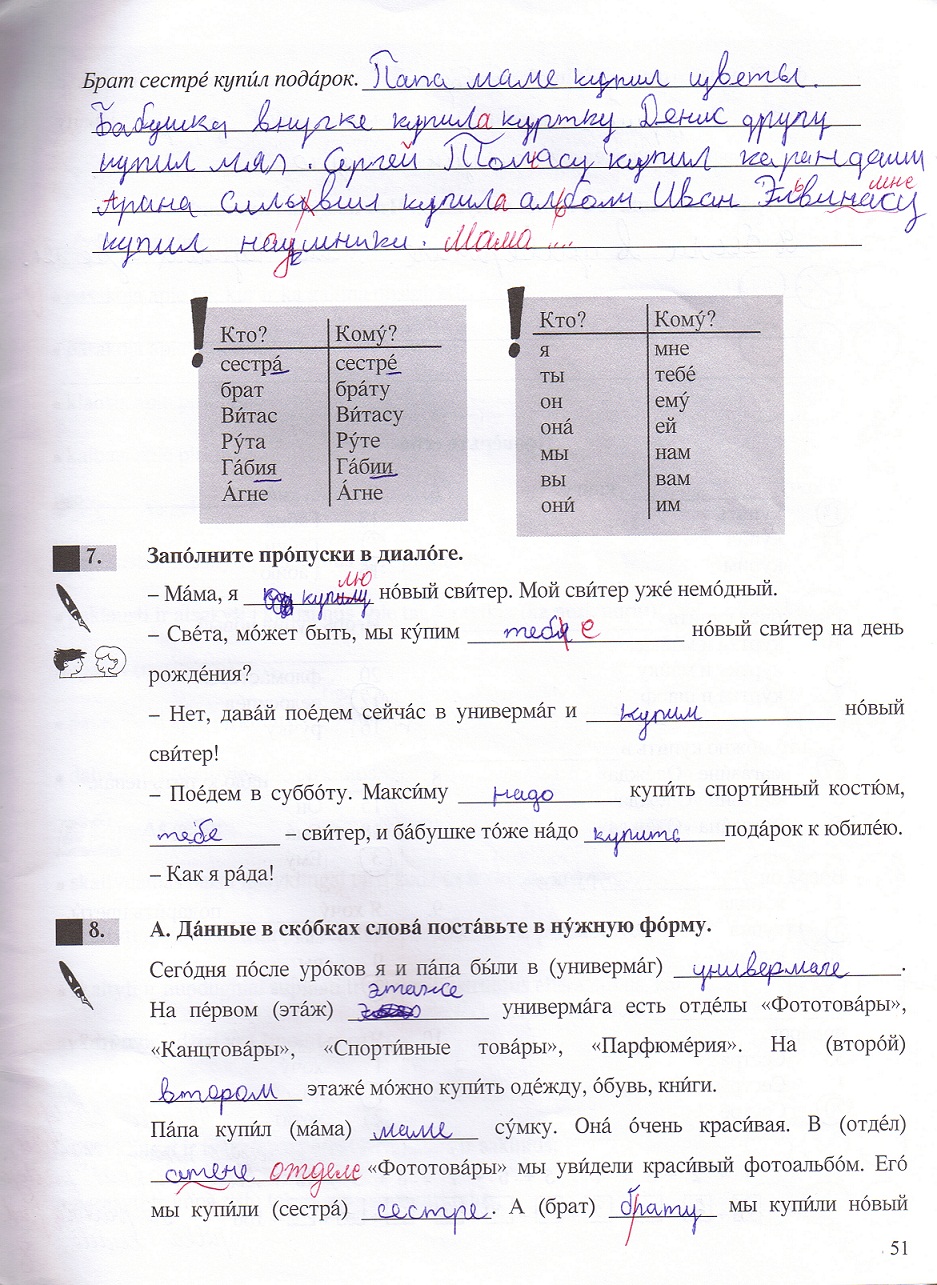 Брат сестре́ купи́л пода́рок. Папа маме купил цветы.
Бабушка внучке купила куртку. Денис другу
купил мяч. Сергей Томасу купил карандаши
Арина купила альбом. Иван Элвинасу мне
купил наушники. Мама ...
! Кто? Кому́?
сестра́ сестре́
брат бра́ту
Ви́тас Ви́тасу
Ру́та Ру́те
Га́бия Га́бии
А́гне А́гне
! Кто? Кому́?
я мне
ты тебе́
он ему́
она́ ей
мы нам
вы вам
они́ им
7. Запо́лните про́пуски в диало́ге.
– Ма́ма, я куплю но́вый сви́тер. Мой сви́тер уже́ немо́дный.
– Све́та, мо́жет быть, мы ку́пим тебя е но́вый сви́тер на день
рожде́ния?
– Нет, дава́й пое́дем сейча́с в универма́г и купим но́вый
сви́тер!
– Пое́дем в суббо́ту. Макси́му надо купи́ть спорти́вный костю́м,
тебе – сви́тер, и ба́бушке то́же на́до купить пода́рок к юбиле́ю.
– Как я ра́да!
8. А. Да́нные в ско́бках слова́ поста́вьте в ну́жную фо́рму.
Сего́дня по́сле уро́ков я и па́па бы́ли в (универма́г) универмаге.
На пе́рвом (эта́ж) этаже универма́га есть отде́лы «Фототова́ры»,
«Канцтова́ры», «Спорти́вные това́ры», «Парфюме́рия». На (второ́й)
втором этаже́ мо́жно купи́ть оде́жду, о́бувь, кни́ги.
Па́па купи́л (ма́ма) маме су́мку. Она́ о́чень краси́вая. В (отде́л)
отделе «Фототова́ры» мы уви́дели краси́вый фотоальбо́м. Его́
мы купи́ли (сестра́) сестре. А (брат) брату мы купи́ли но́вый
51